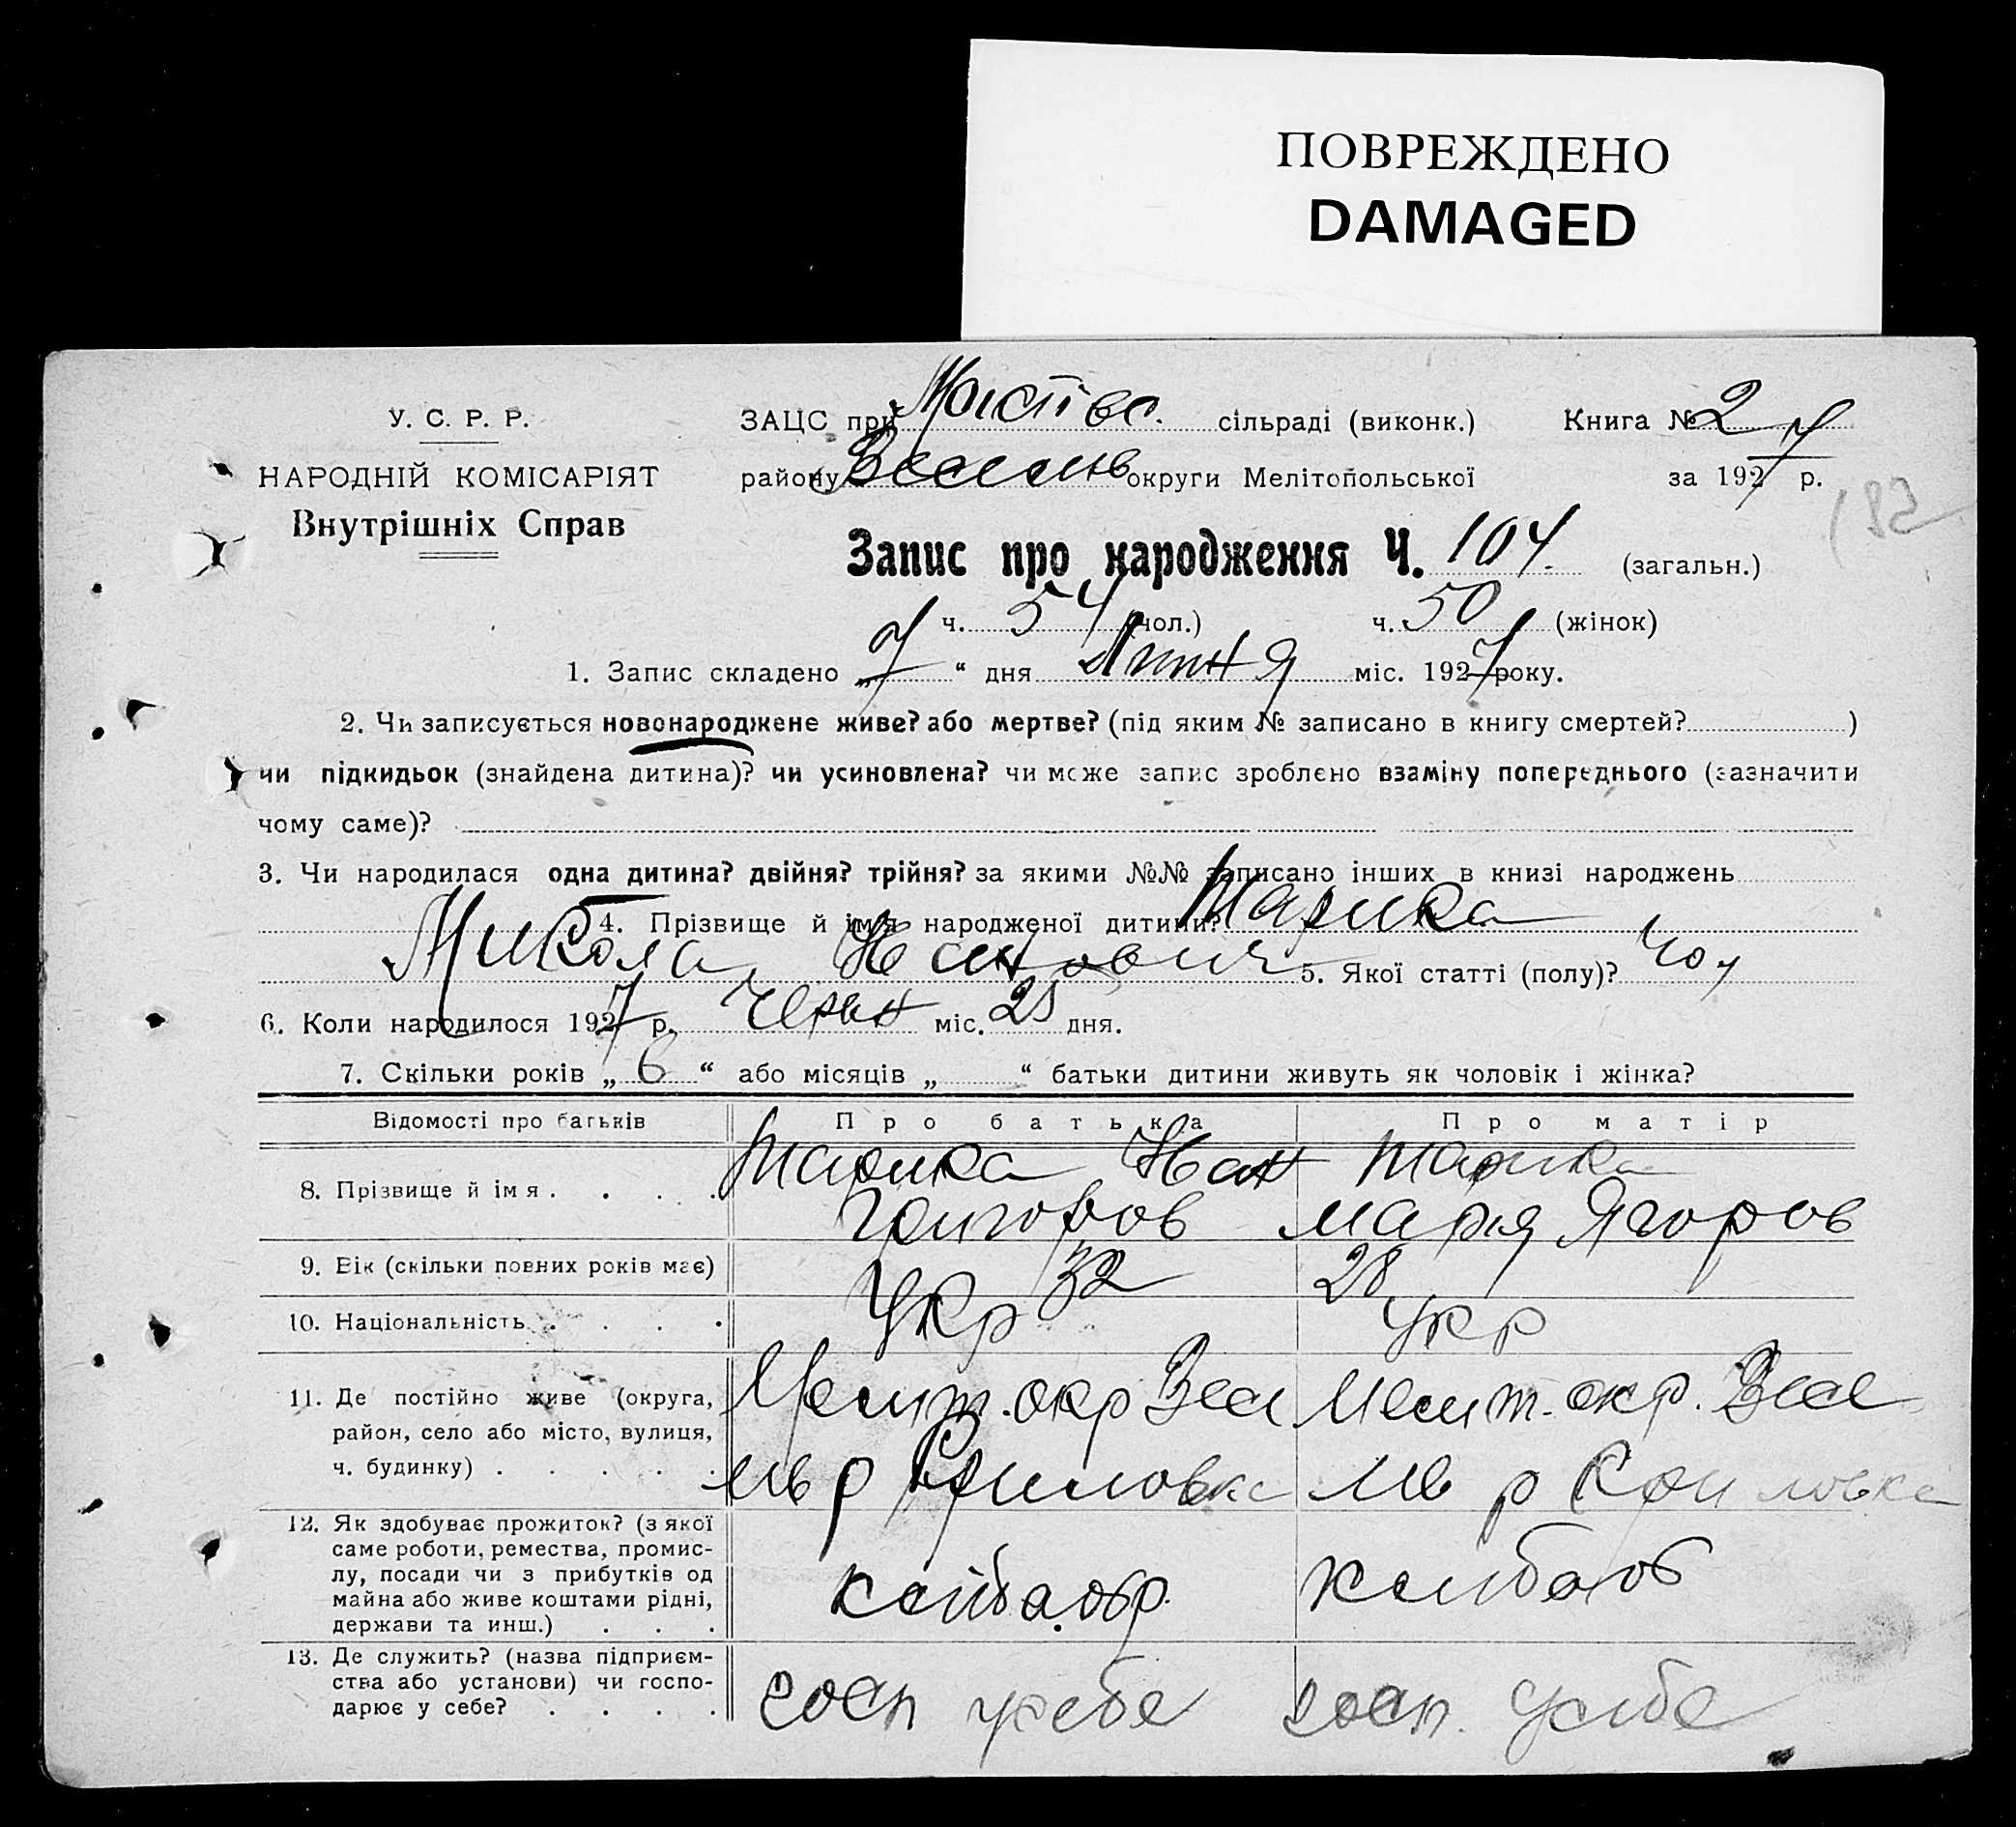 ПОВРЕЖДЕНО
DAMAGED
У. С. Р. Р.
НАРОДНІЙ КОМІСАРІЯТ
Внутрішніх Справ
ЗАЦС при сільраді (виконк.) Книга № 2
району округи Мелітопольської за 1927 р.
Запис про народження Ч. 104 (загальн.)
ч. 54 (чол.) ч. 50 (жінок)
1. Запис складено „7“ дня Липня міс. 1927 року.
2. Чи записується новонароджене живе? або мертве? (під яким № записано в книгу смертей? )
чи підкидьок (знайдена дитина)? чи усиновлена? чи може запис зроблено взаміну попереднього (зазначити
чому саме)?
3. Чи народилася одна дитина? двійня? трійня? за якими №№ записано інших в книзі народжень
4. Прізвище й ім'я народженої дитини?
Микола 5. Якої статті (полу)? чол
6. Коли народилося 1927 р. Червн міс. 25 дня.
7. Скільки років „6“ або місяців „ “ батьки дитини живуть як чоловік і жінка?
Відомості про батьків Про батька Про матір
8. Прізвище й імя . . . .
Григоров Марія Ягоров
9. Вік (скільки повних років має) 32 28
10. Національність . . . . Укр Укр
11. Де постійно живе (округа, Меліт. окр Весе Меліт. окр. Весе
район, село або місто, вулиця,
ч. будинку) . . . . . р р
12. Як здобуває прожиток? (з якої
саме роботи, ремества, промис-
лу, посади чи з прибутків од
майна або живе коштами рідні,
держави та инш.) . . .
13. Де служить? (назва підприєм-
ства або установи) чи госпо- госп у себе госп. у себе
дарює у себе? . . . .